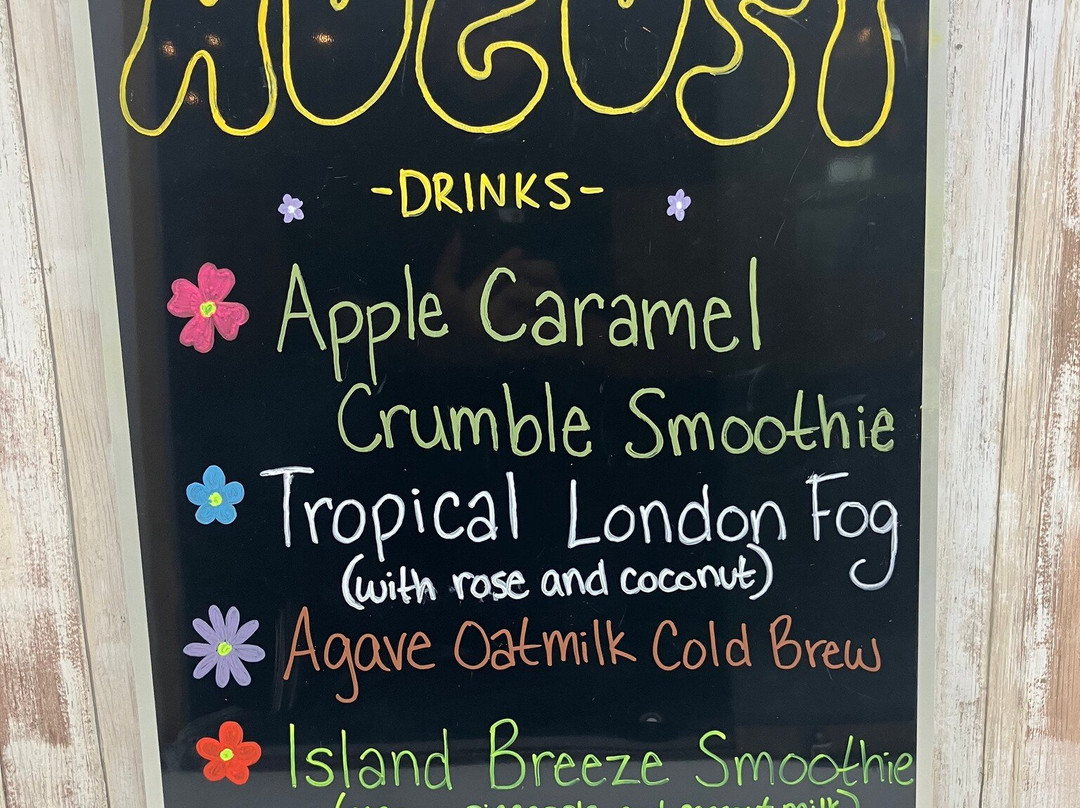 AUGUST
-DRINKS-
Apple Caramel
Crumble Smoothie
Tropical London Fog
(with rose and coconut)
Agave Oatmilk Cold Brew
Island Breeze Smoothie